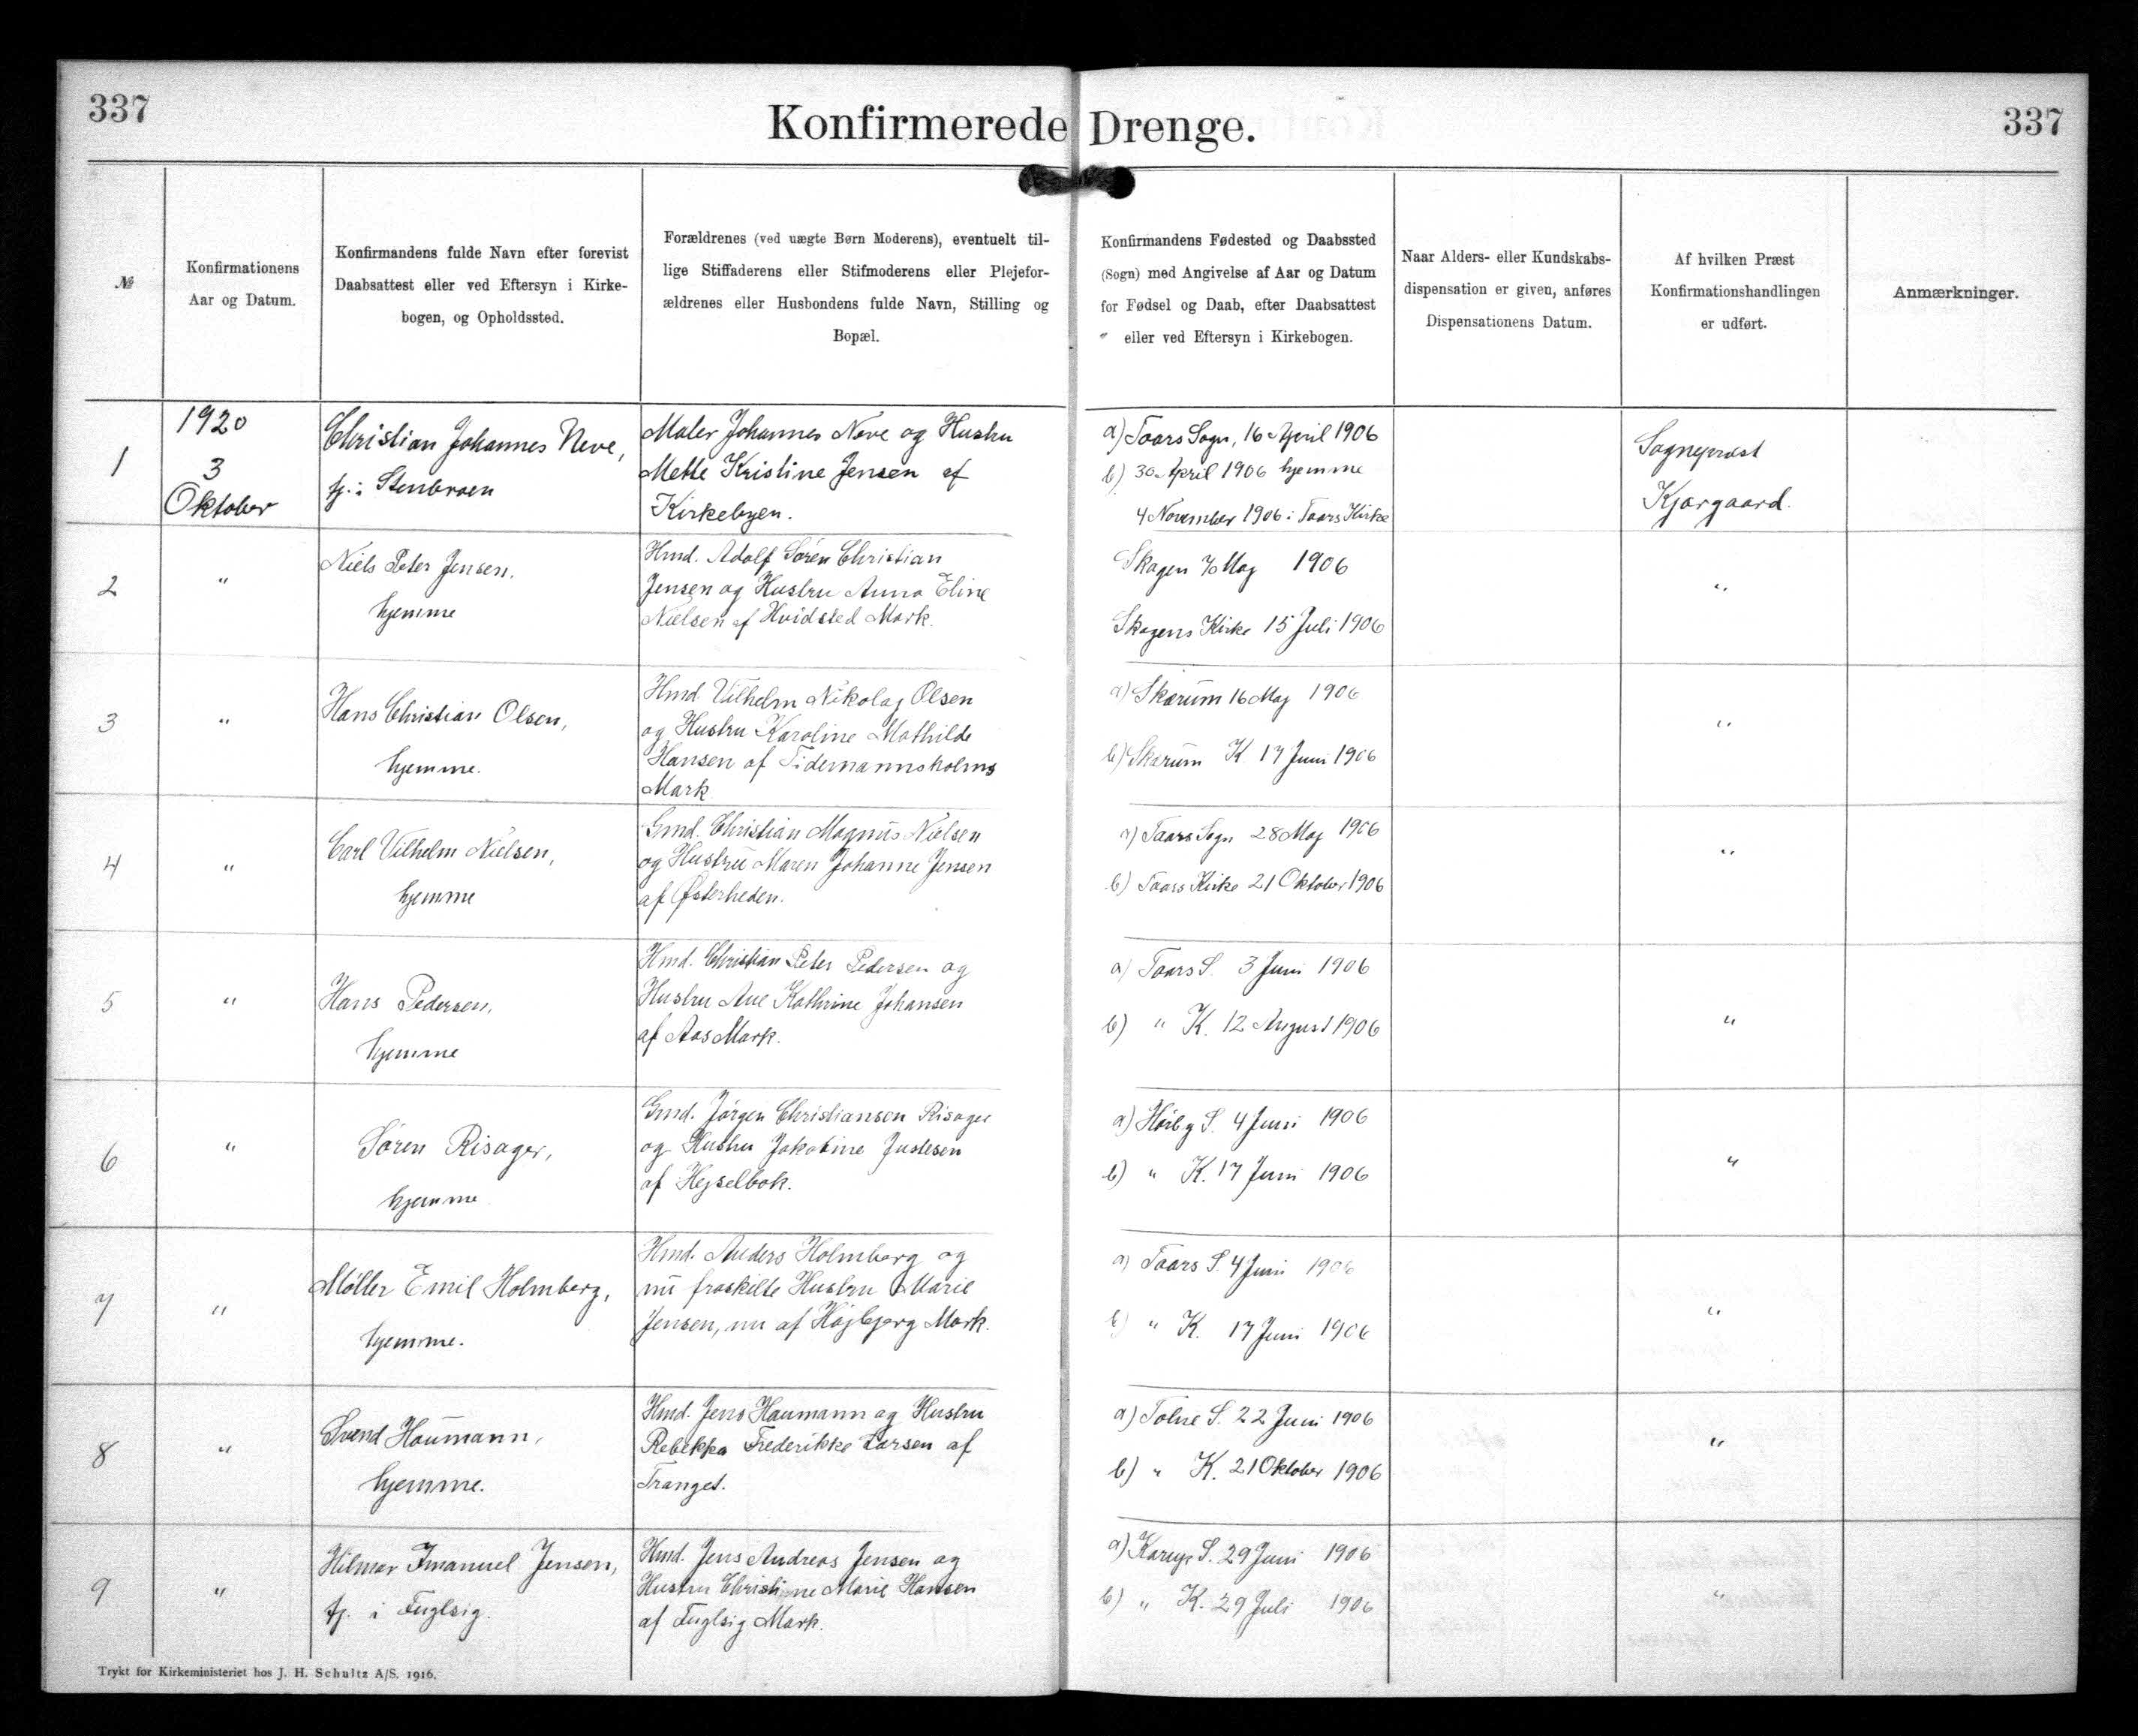 337
Konfirmerede Drenge.
337
№
Konfirmationens
Aar og Datum.
Konfirmandens fulde Navn efter forevist
Daabsattest eller ved Eftersyn i Kirke-
bogen, og Opholdssted.
Forældrenes (ved uægte Børn Moderens), eventuelt til-
lige Stiffaderens eller Stifmoderens eller Plejefor-
ældrenes eller Husbondens fulde Navn, Stilling og
Bopæl.
Konfirmandens Fødested og Daabssted
(Sogn) med Angivelse af Aar og Datum
for Fødsel og Daab, efter Daabsattest
eller ved Eftersyn i Kirkebogen.
Naar Alders- eller Kundskabs-
dispensation er given, anføres
Dispensationens Datum.
Af hvilken Præst
Konfirmationshandlingen
er udført.
Anmærkninger.
1
1920
3
Oktober
Christian Johannes Neve,
tj. i Stenbroen
Maler Johannes Neve og Hustru
Mette Kristine Jensen af
Kirkebyen.
a) Taars Sogn, 16 April 1906
b) 30 April 1906 hjemme
4 November 1906 i Taars Kirke
Sognepræst
Kjærgaard.
2
"
Niels Peter Jensen.
hjemme
Hmd. Adolf Søren Christian
Jensen og Hustru Anna Eline
Nielsen af Hvidsted Mark.
Skagen Maj 1906
Skagens Kirke 15 Juli 1906
"
3
"
Hans Christian Olsen,
hjemme.
Hmd Vilhelm Nikolaj Olsen
og Hustru Karoline Mathilde
Hansen af Tidemannsholms
Mark
a) Skærum 16 Maj 1906
b) Skærum K. 17 Juni 1906
"
4
"
Carl Vilhelm Nielsen,
hjemme
Gmd. Christian Magnus Nielsen
og Hustru Maren Johanne Jensen
af Østerheden.
a) Taars Sogn 28 Maj 1906
b) Taars Kirke 21 Oktober 1906
"
5
"
Hans Pedersen,
hjemme
Hmd. Christian Peter Pedersen og
Hustru Ane Kathrine Johansen
af Aas Mark.
a) Taars S. 3 Juni 1906
b) " K. 12 August 1906
"
6
"
Søren Risager,
hjemme
Gmd. Jørgen Christiansen Risager
og Hustru Jakobine Justesen
af Hejselbæk.
a) Hørby S. 4 Juni 1906
b) " K. 17 Juni 1906
"
7
"
Møller Emil Holmberg,
hjemme.
Hmd. Anders Holmberg og
nu fraskilte Hustru Marie
Jensen, nu af Højbjerg Mark.
a) Taars S. 4 Juni 1906
b) " K. 17 Juni 1906
"
8
"
Svend Haumann,
hjemme.
Hmd. Jens Haumann og Hustru
Rebekka Frederikke Larsen af
Tranget.
a) Tolne S. 22 Juni 1906
b) " K. 21 Oktober 1906
"
9
"
Hilmar Imanuel Jensen,
tj. i Fuglsig.
Hmd. Jens Andreas Jensen og
Hustru Christine Marie Hansen
af Fuglsig Mark.
a) Karup S. 29 Juni 1906
b) " K. 29 Juli 1906
"
Trykt for Kirkeministeriet hos J. H. Schultz A/S. 1916.